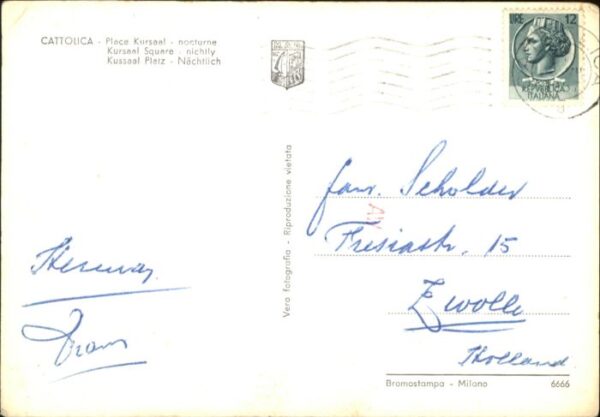 CATTOLICA - Place Kursaal - nocturne
Kursaal Square - nichtly
Kussaal Platz - Nächtlich
LIRE 12
REPVBBLICA
ITALIANA
fam. Scholder
Fresiastr. 15
Zwolle
Holland
Vera fotografia - Riproduzione vietata
Bromostampa - Milano
6666